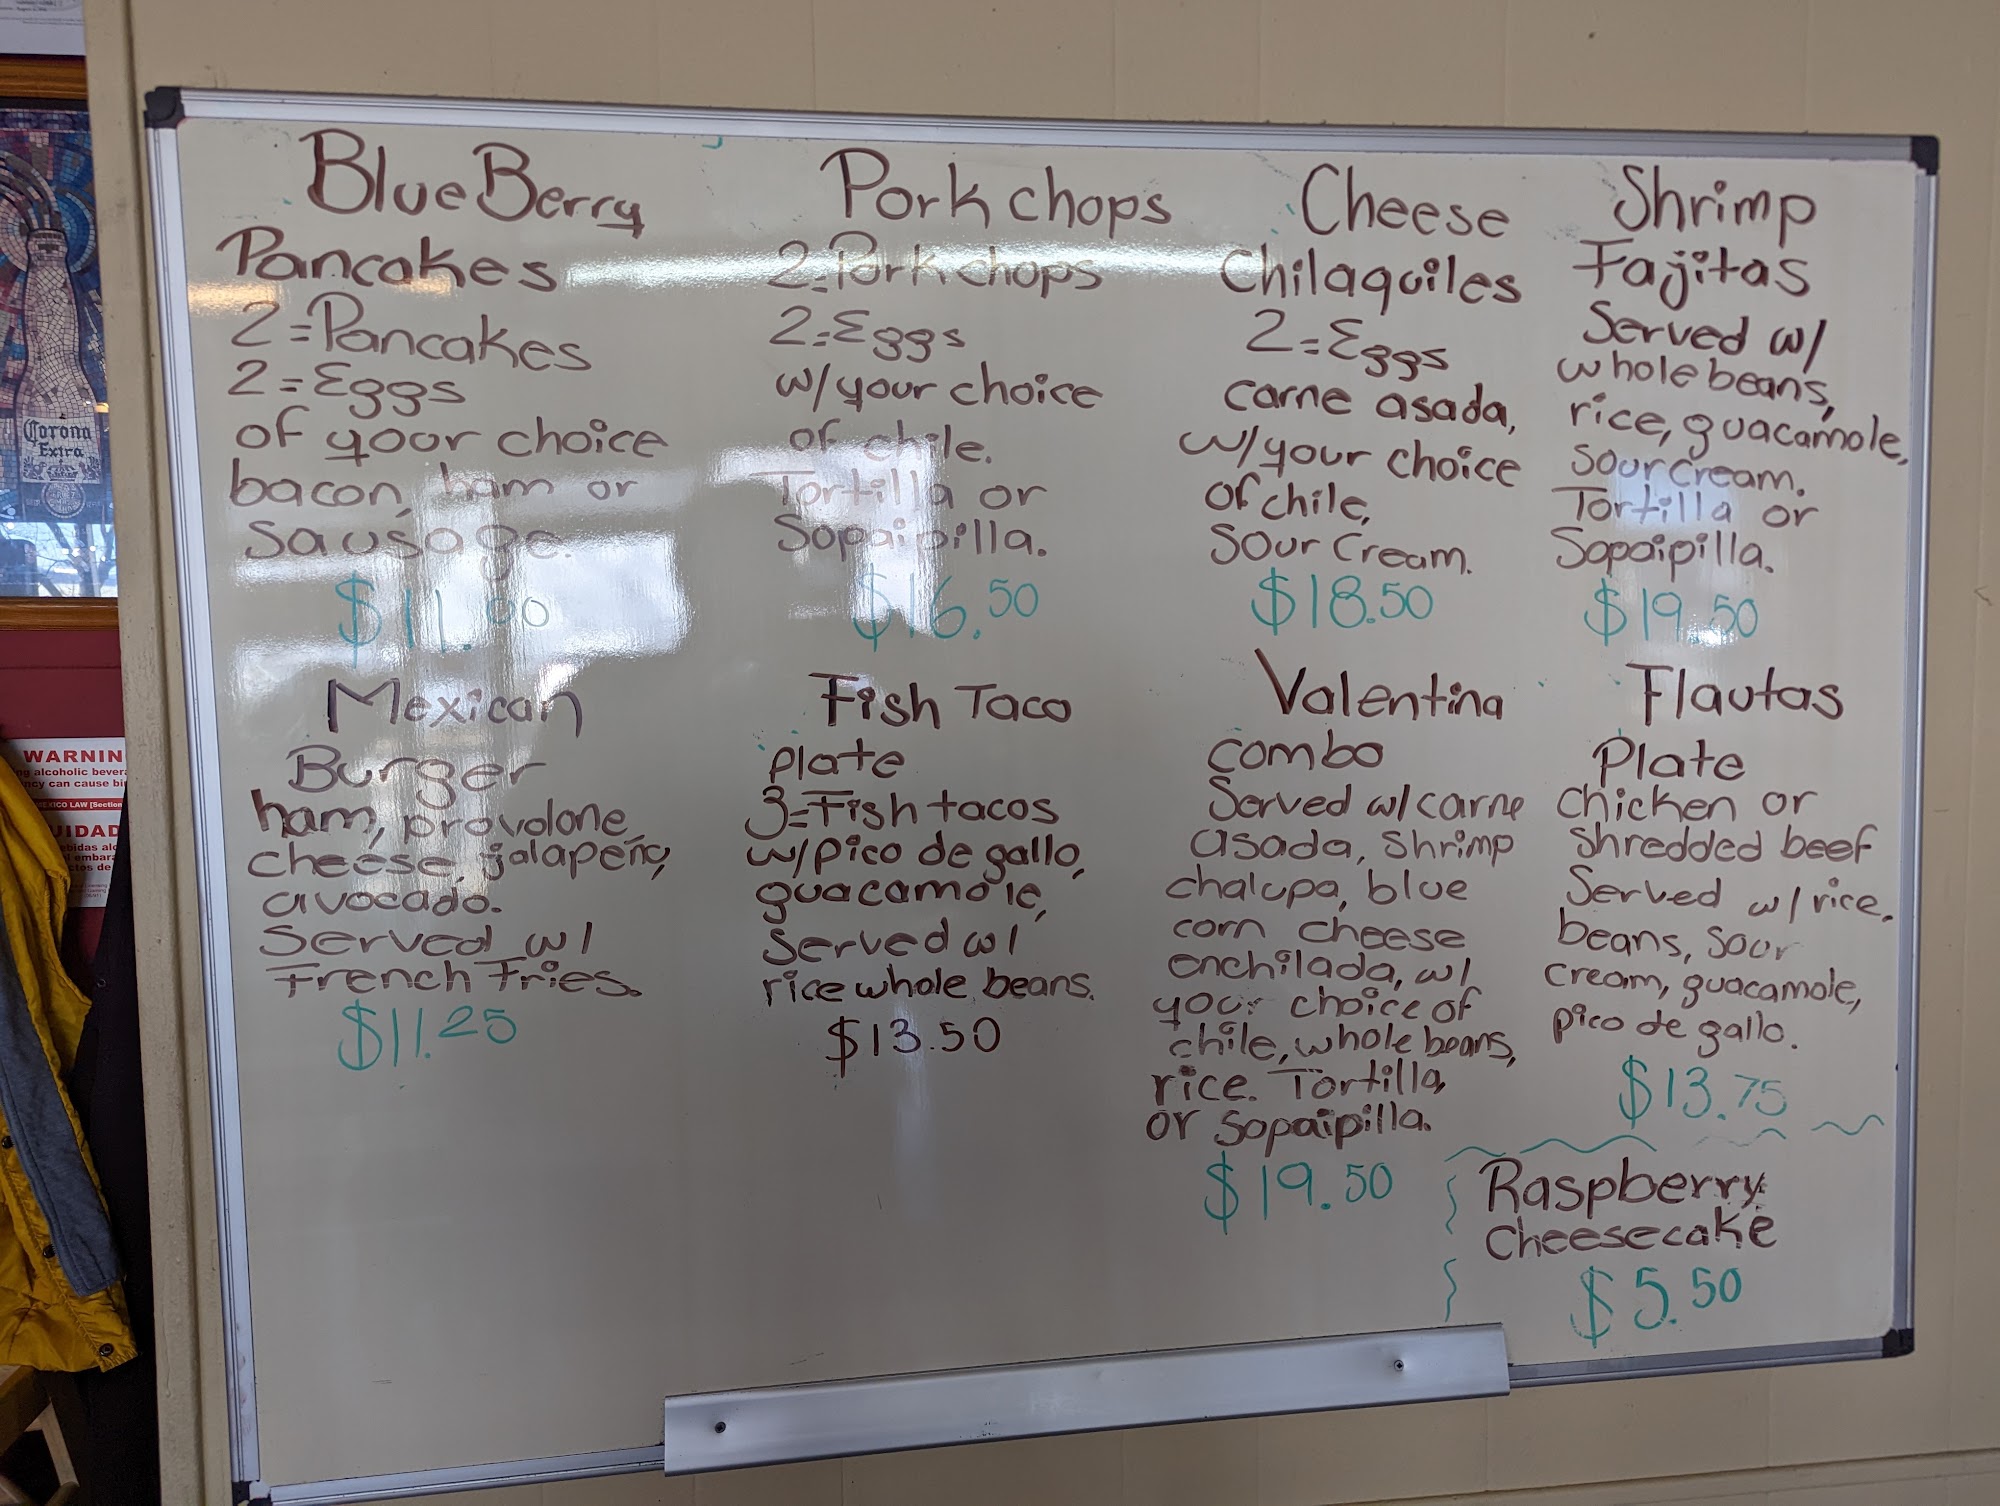 BlueBerry
Pancakes
2=Pancakes
2=Eggs
of your choice
bacon, ham or
sausage.
$11.00
Pork chops
2=Pork chops
2=Eggs
w/your choice
of chile.
Tortilla or
Sopaipilla.
$16.50
Cheese
Chilaquiles
2=Eggs
carne asada,
w/your choice
of chile,
Sour Cream.
$18.50
Shrimp
Fajitas
Served w/
whole beans,
rice, guacamole,
sour cream.
Tortilla or
Sopaipilla.
$19.50
Mexican
Burger
ham, provolone
cheese, jalapeño,
avocado.
Served w/
French Fries.
$11.25
Fish Taco
plate
3=Fish tacos
w/pico de gallo,
guacamole,
Served w/
rice whole beans.
$13.50
Valentina
combo
Served w/carne
asada, shrimp
chalupa, blue
corn cheese
enchilada, w/
your choice of
chile, whole beans,
rice. Tortilla
or Sopaipilla.
$19.50
Flautas
Plate
Chicken or
shredded beef
Served w/rice,
beans, sour
cream, guacamole,
pico de gallo.
$13.75
Raspberry
Cheesecake
$5.50
Corona
Extra
WARNIN
ng alcoholic bevera
ncy can cause bi
MEXICO LAW [Section
UIDAD
ebidas alc
l embara
ctos de